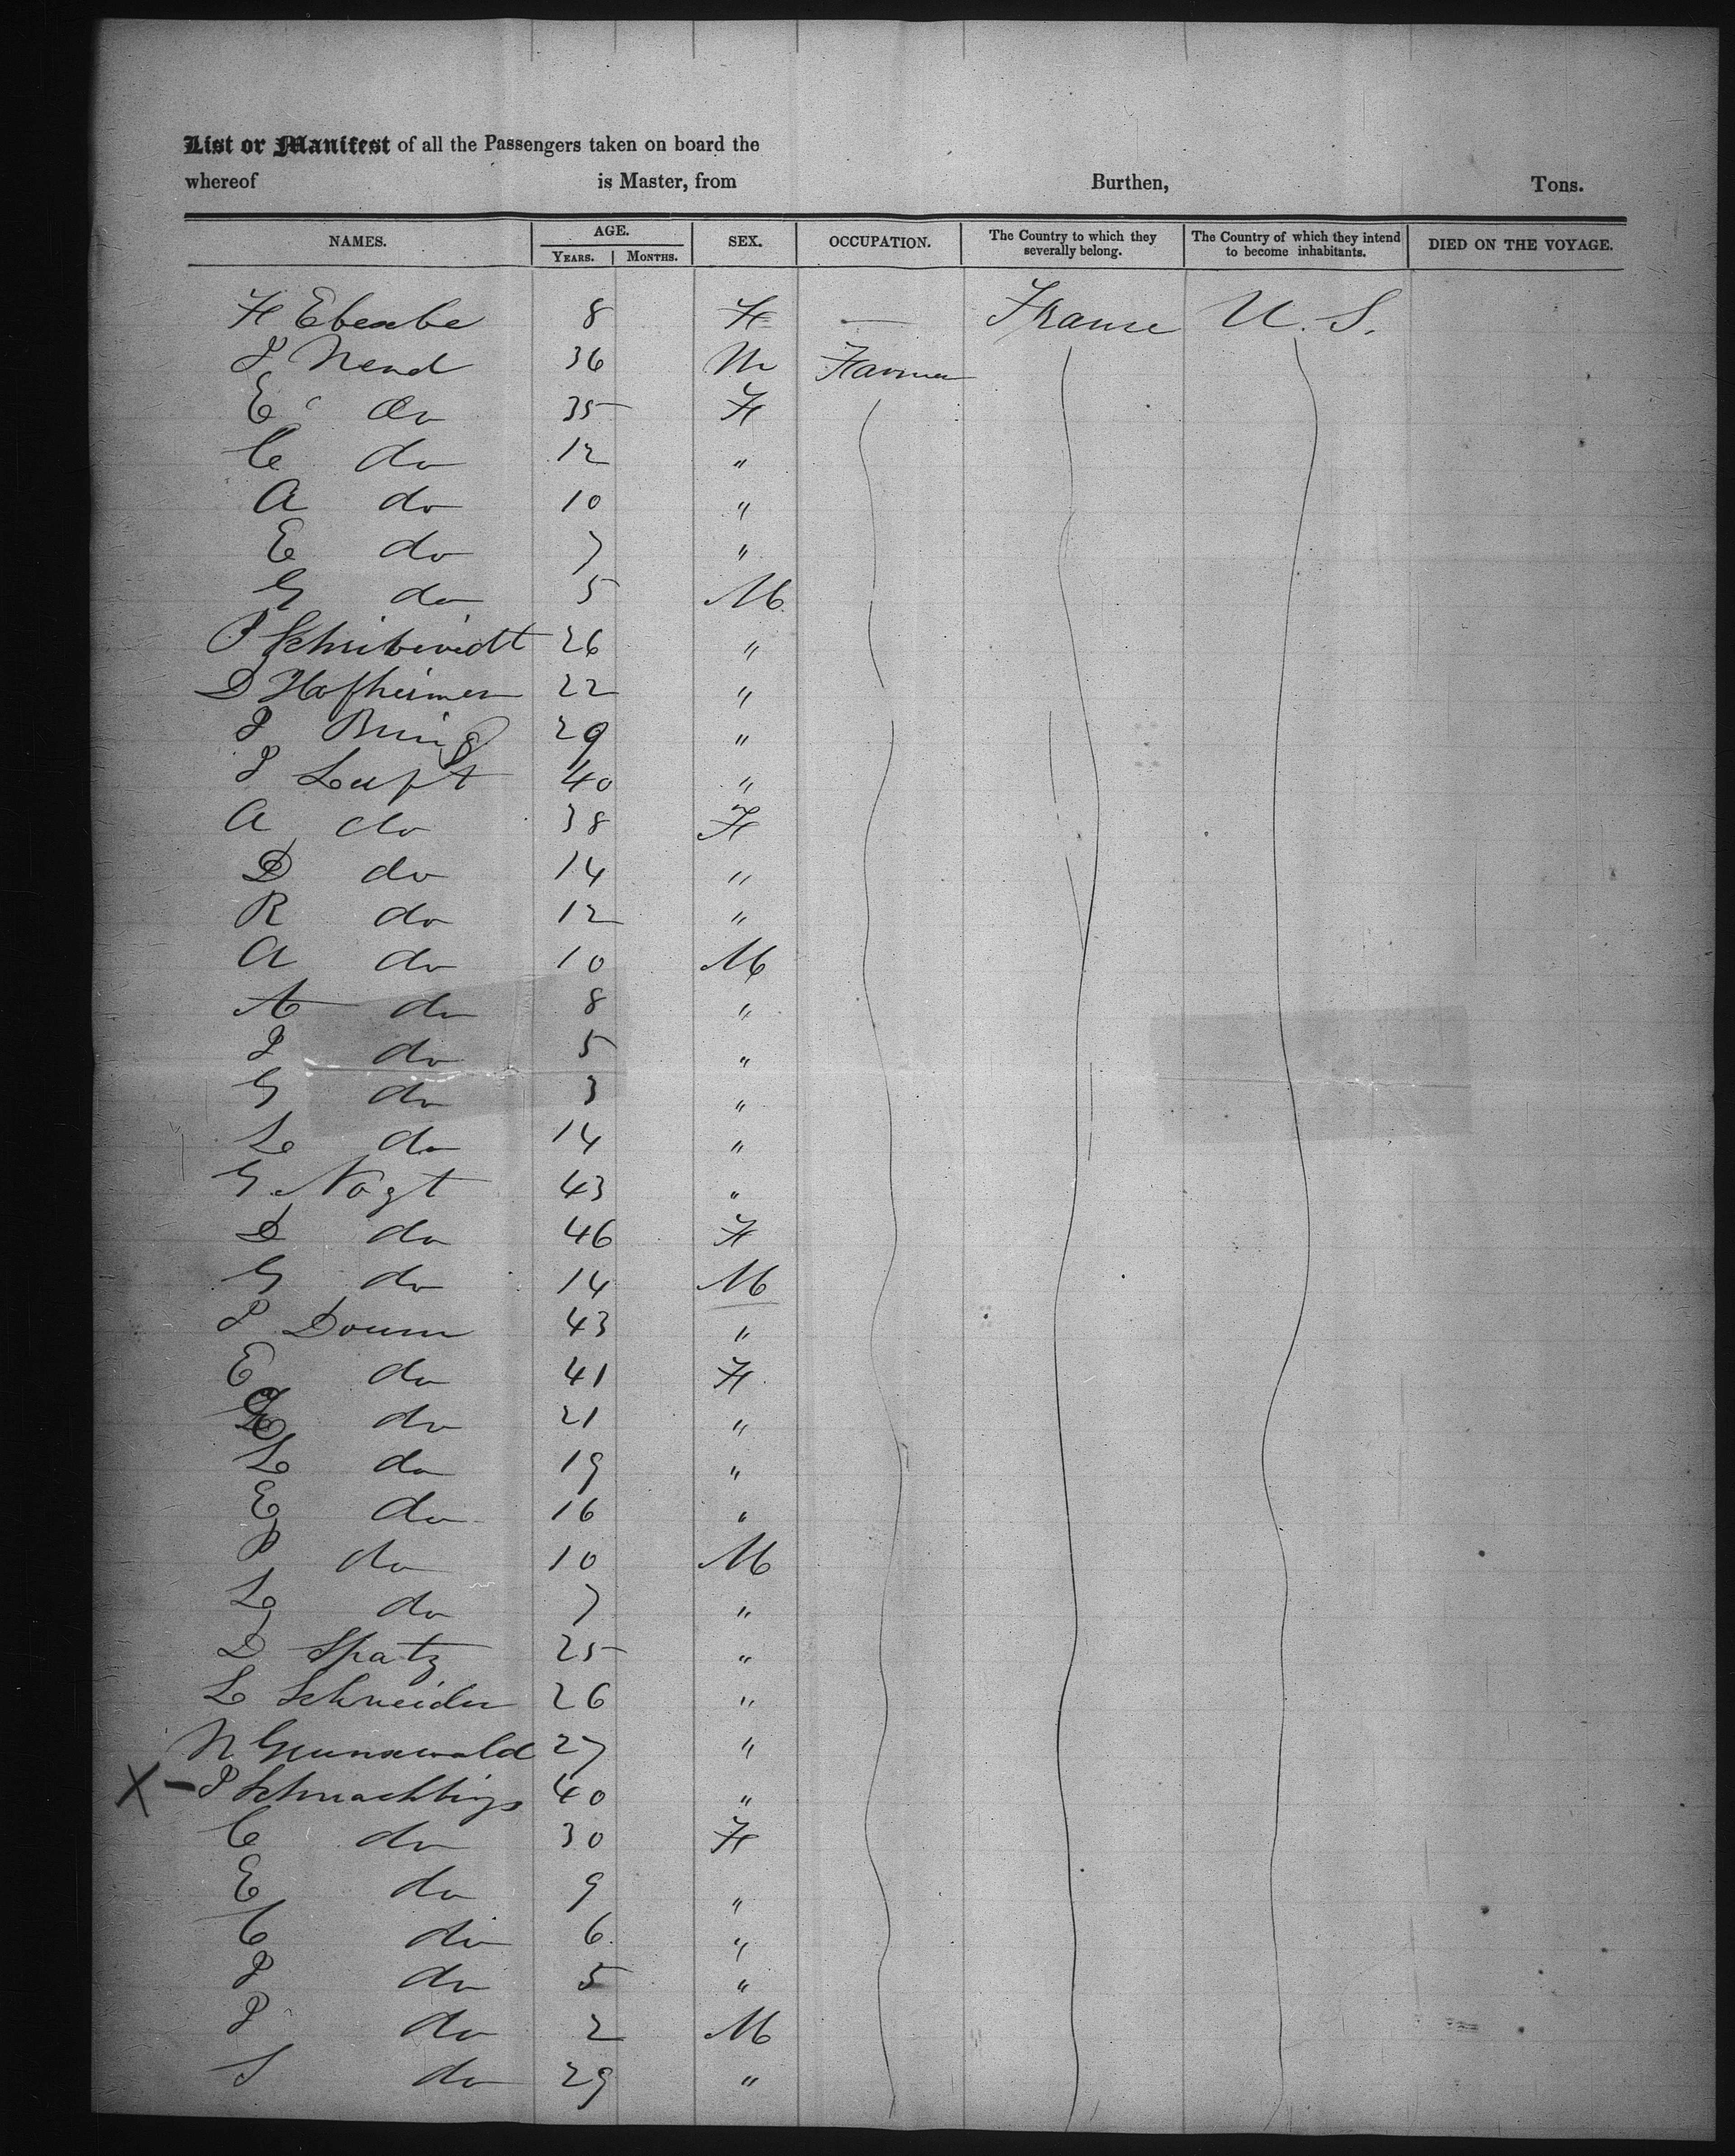 List or Manifest of all the Passengers taken on board the
whereof is Master, from Burthen, Tons.
NAMES. AGE. SEX. OCCUPATION. The Country to which they severally belong. The Country of which they intend to become inhabitants. DIED ON THE VOYAGE.
YEARS. MONTHS.
F 8 F — France U. S.
P Nend 36 M Farmer
E do 35 F
C do 12 "
A do 10 "
E do 7 "
G do 5 M
P 26 "
D Hofheimer 22 "
P 29 "
P Luft 40 "
A do 38 F
D do 14 "
R do 12 "
A do 10 M
A do 8 "
P do 5 "
G do 3 "
L do 14 "
G Vogt 43 "
D do 46 F
G do 14 M
P Doum 43 "
E do 41 F
do 21 "
L do 19 "
E do 16 "
P do 10 M
L do 7 "
D Spatz 25 "
L Schneider 26 "
N Grunewald 27 "
X - P 40 "
C do 30 F
E do 9 "
C do 6 "
P do 5 "
P do 2 M
S do 29 "